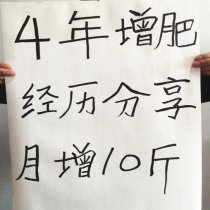 4年增肥
经历分享
月增10斤